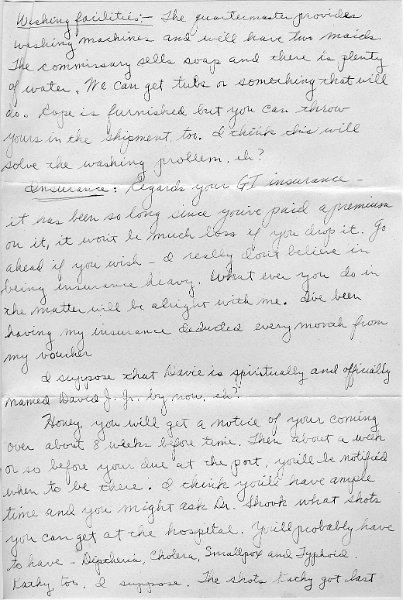 Washing facilities:- The quartermaster provides
washing machines and will have two maids.
The commissary sells soap and there is plenty
of water. We can get tubs or something that will
do. Rope is furnished but you can throw
yours in the shipment, too. I think this will
solve the washing problem, eh?
Insurance: Regards your GI insurance -
it has been so long since you've paid a premium
on it, it won't be much loss if you drop it. Go
ahead if you wish - I really don't believe in
being insurance heavy. What ever you do in
the matter will be alright with me. I've been
having my insurance deducted every month from
my voucher
I suppose that Davie is spiritually and officially
named David J. Jr. by now, eh?
Honey, you will get a notice of your coming
over about 8 weeks before time. Then about a week
or so before your due at the port, you'll be notified
when to be there. I think you'll have ample
time and you might ask Dr. Shook what shots
you can get at the hospital. You'll probably have
to have - Diptheria, Cholera, Smallpox and Typhoid.
Kathy too, I suppose. The shots Kathy got last